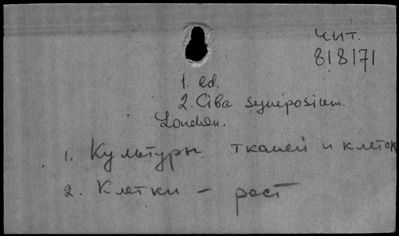 чит.
8/8/71
1. ed.
2. Ciba symposium.
London.
1. Культуры тканей и клеток
2. Клетки - рост